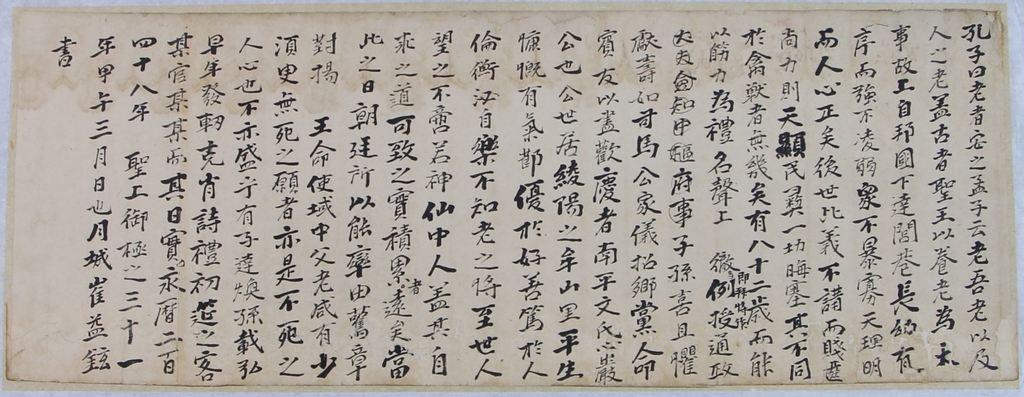 孔子曰老者安之孟子云老吾老以及
人之老盖古者聖王以養老為
事故上自邦國下達閭巷長幼有
序而強不凌弱眾不暴寡天理明
而人心正矣後世此義不講而賤遊
尚力則天顯民彛一切晦塞其不同
於禽獸者無幾矣有八十二歲而能
以筋力為禮名聲上 徹例授通政
大夫僉知中樞府事子孫喜且懼
獻壽如司馬公家儀招鄉黨人命
賓友以盡歡慶者南平文氏之巖
公也公世居綾陽之牟山里平生
慷慨有氣鄒優於好善篤於人
倫衡泌自樂不知老之將至世人
望之不啻若神仙中人盖其自
求之道可致之實積累者遠矣當
此之日朝廷所以能率由舊章
對揚 王命使域中父老咸有少
須臾無死之願者亦是不死之
人心也不亦盛乎有子達煥孫載弘
早年發軔克有詩禮初筵之客
某官某某也其日實永曆二百
四十八年 聖上御極之三十一
年甲午三月日也月城崔益鉉
書